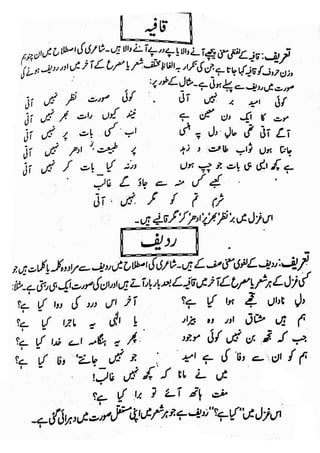 قافیہ
تعریف: قافیہ کے لفظی معنی پیچھے آنے والا یا پے در پے آنے والا ہیں۔ شاعری کی اصطلاح میں ان چند ہم
وزن حروف کو قافیہ کہا جاتا ہے جن کی تکرار بہ الفاظ مختلف شعر یا مصرع کے آخر میں اور ردیف ہونے کی
صورت میں ردیف سے پہلے ہوتی ہے۔ مثال کے طور پر:
کوئی امید بر نہیں آتی کوئی صورت نظر نہیں آتی
موت کا ایک دن معین ہے نیند کیوں رات بھر نہیں آتی
آگے آتی تھی حالِ دل پہ ہنسی اب کسی بات پر نہیں آتی
جانتا ہوں ثواب طاعت و زہد پر طبیعت ادھر نہیں آتی
ہے کچھ ایسی ہی بات جو چپ ہوں ورنہ کیا بات کر نہیں آتی
کعبے کس منہ سے جاؤ گے غالب
شرم تم کو مگر نہیں آتی
اس غزل میں بر، نظر، بھر، پر، ادھر، کر، مگر قافیے ہیں۔
ردیف
تعریف: ردیف کے لغوی معنی صف کے ہیں۔ شاعری کی اصطلاح میں ردیف سے مراد وہ کلمہ یا کلمات ہیں جو
کسی غزل کے ہر شعر یا مصرع کے آخر میں قافیہ کے بعد بار بار آتے ہیں اور ان کی صورت ایک ہی رہتی ہے۔ مثلاً:
دلِ ناداں تجھے ہوا کیا ہے؟ آخر اس درد کی دوا کیا ہے؟
ہم ہیں مشتاق اور وہ بیزار یا الٰہی یہ ماجرا کیا ہے؟
جب کہ تجھ بن نہیں کوئی موجود پھر یہ ہنگامہ اے خدا کیا ہے؟
ہم کو ان سے وفا کی ہے امید جو نہیں جانتے وفا کیا ہے؟
میں نے مانا کہ کچھ نہیں غالب!
مفت ہاتھ آئے تو برا کیا ہے؟
اس غزل میں "کیا ہے؟" ردیف ہے جو ہر شعر میں اپنی مستقل صورت میں دہرائی گئی ہے۔